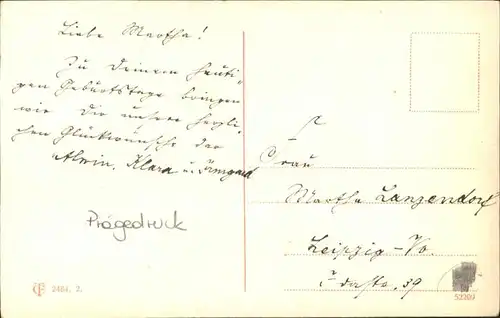 Liebe Martha!
Zu deinem heuti-
gen Geburtstage bringen
wir Dir unsere herzli-
chen Glückwünsche dar
Alwin, Klara u. Irmgard
Prägedruck
2481. 2.
Frau
Martha Langendorf
Leipzig-Vo.
Idastr. 39
52309